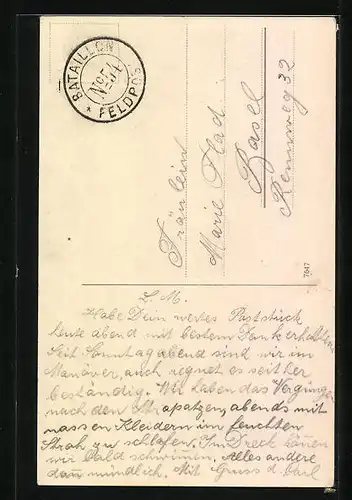 BATAILLON
No 54
* FELDPOST
Fräulein
Marie Flad
Basel
Rennweg 32
7647
L. M.
Habe Dein wertes Poststück
heute abend mit bestem Dank erhalten.
Seit Sonntag abend sind wir im
Manöver, auch regnet es seither
beständig. Wir haben das Vergnügen
nach den Strapatzen, abends mit
nassen Kleidern im feuchten
Stroh zu schlafen. Im Dreck können
wir bald schwimmen. Alles andere
dann mündlich. Mit Gruss d. Carl